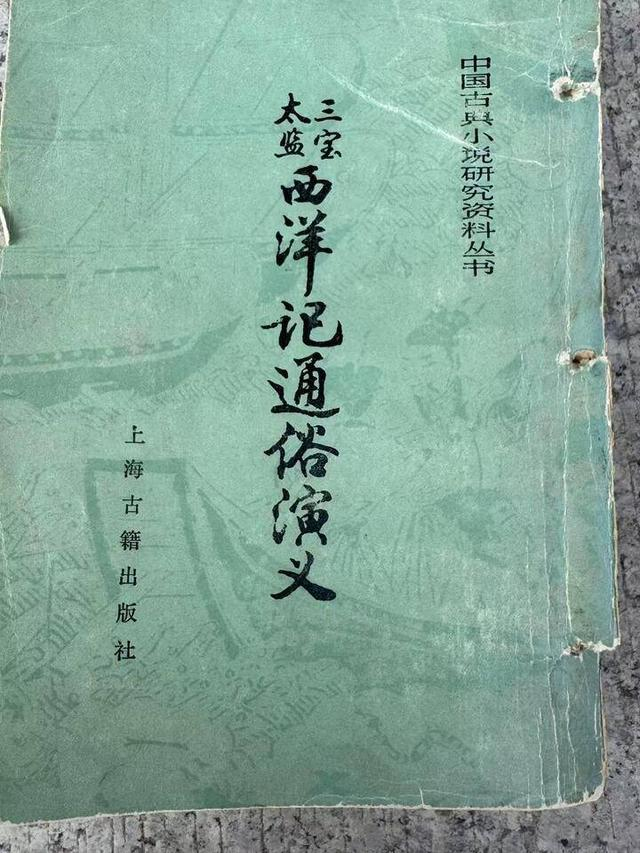 中国古典小说研究资料丛书
三宝
太监
西洋记通俗演义
上海古籍出版社